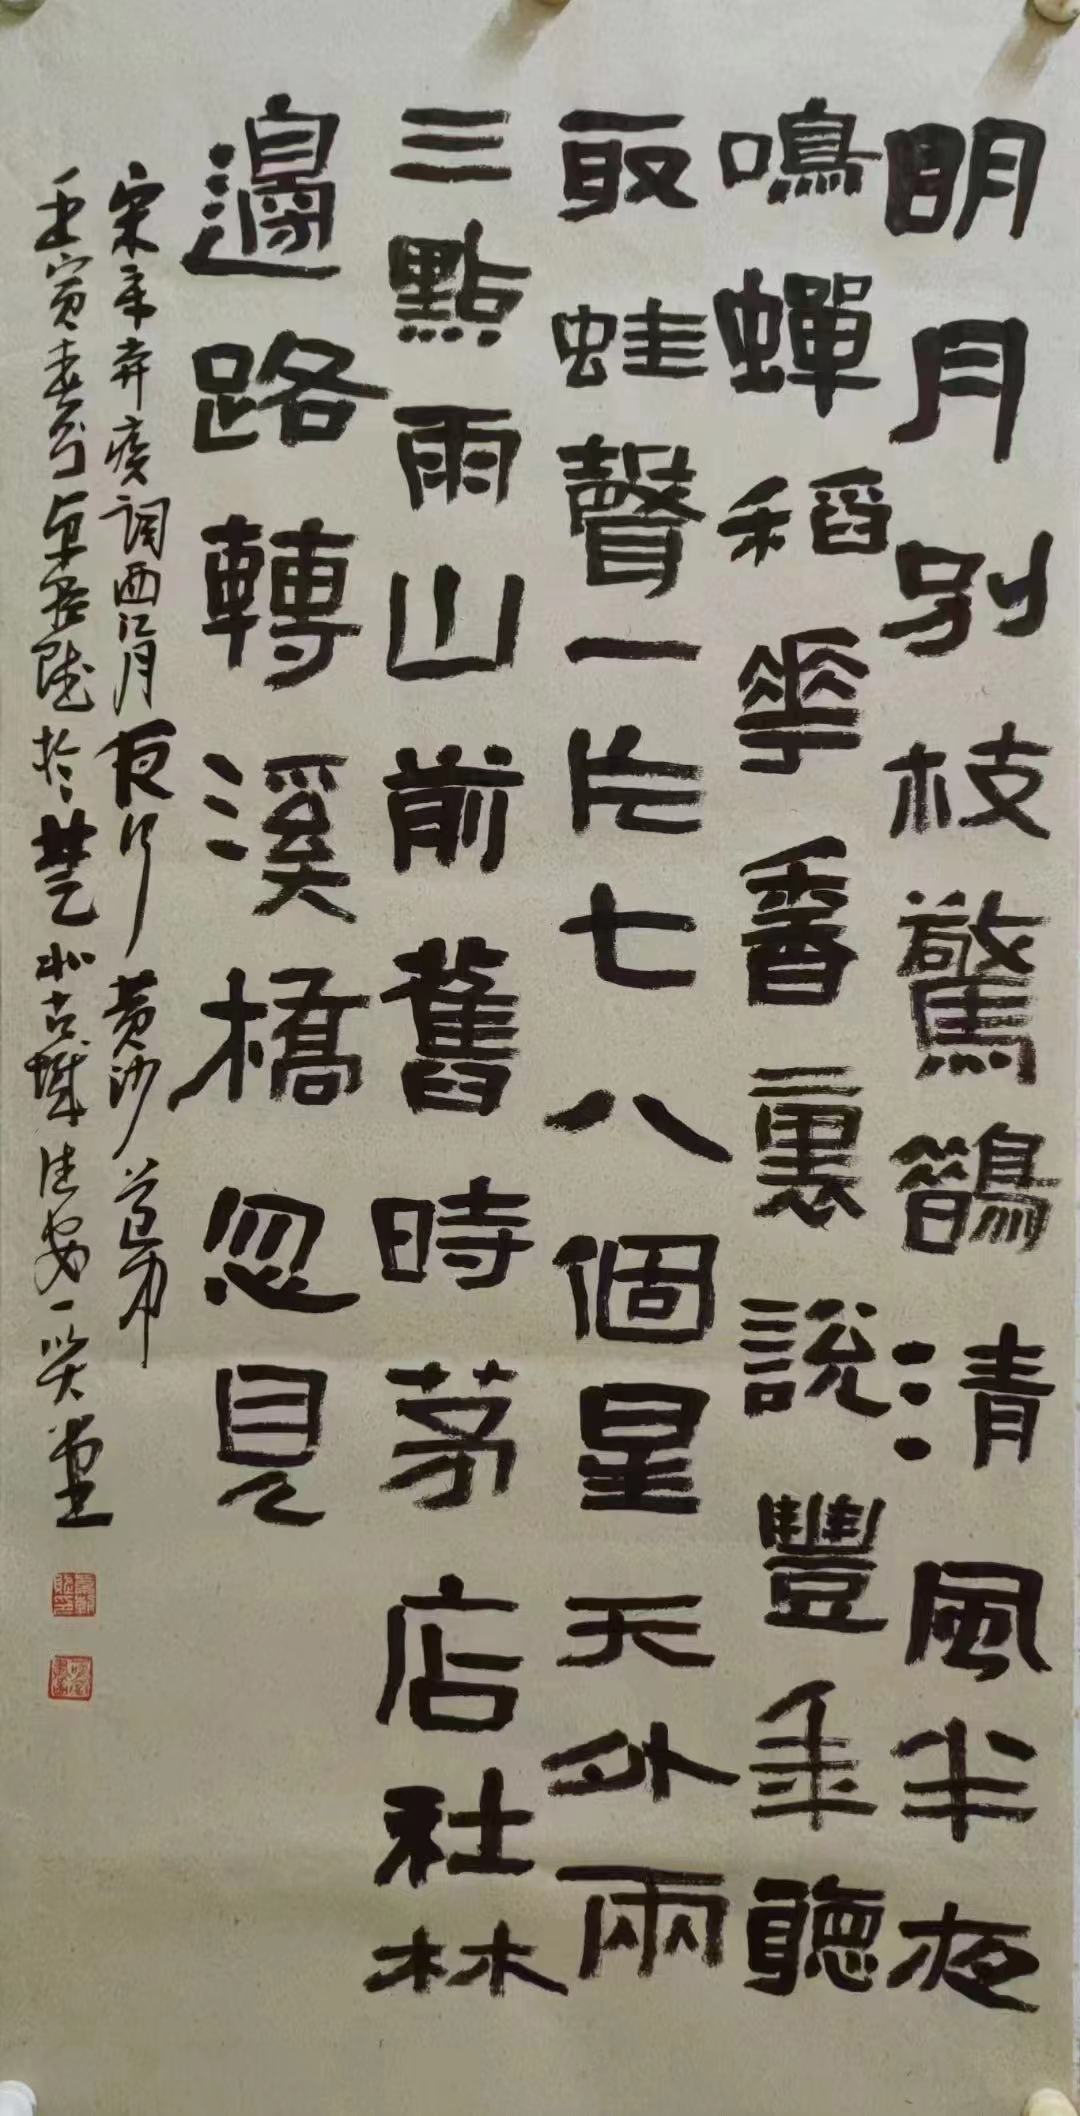 眀月別枝驚鵲清風半夜
鳴蟬稻華香裏說豐年聽
取蛙聲一片七八個星天外兩
三點雨山前舊時茅店社林
邊路轉溪橋忽見
宋辛弃疾词西江月夜行黄沙道中
壬寅春於楚北古城一笑堂